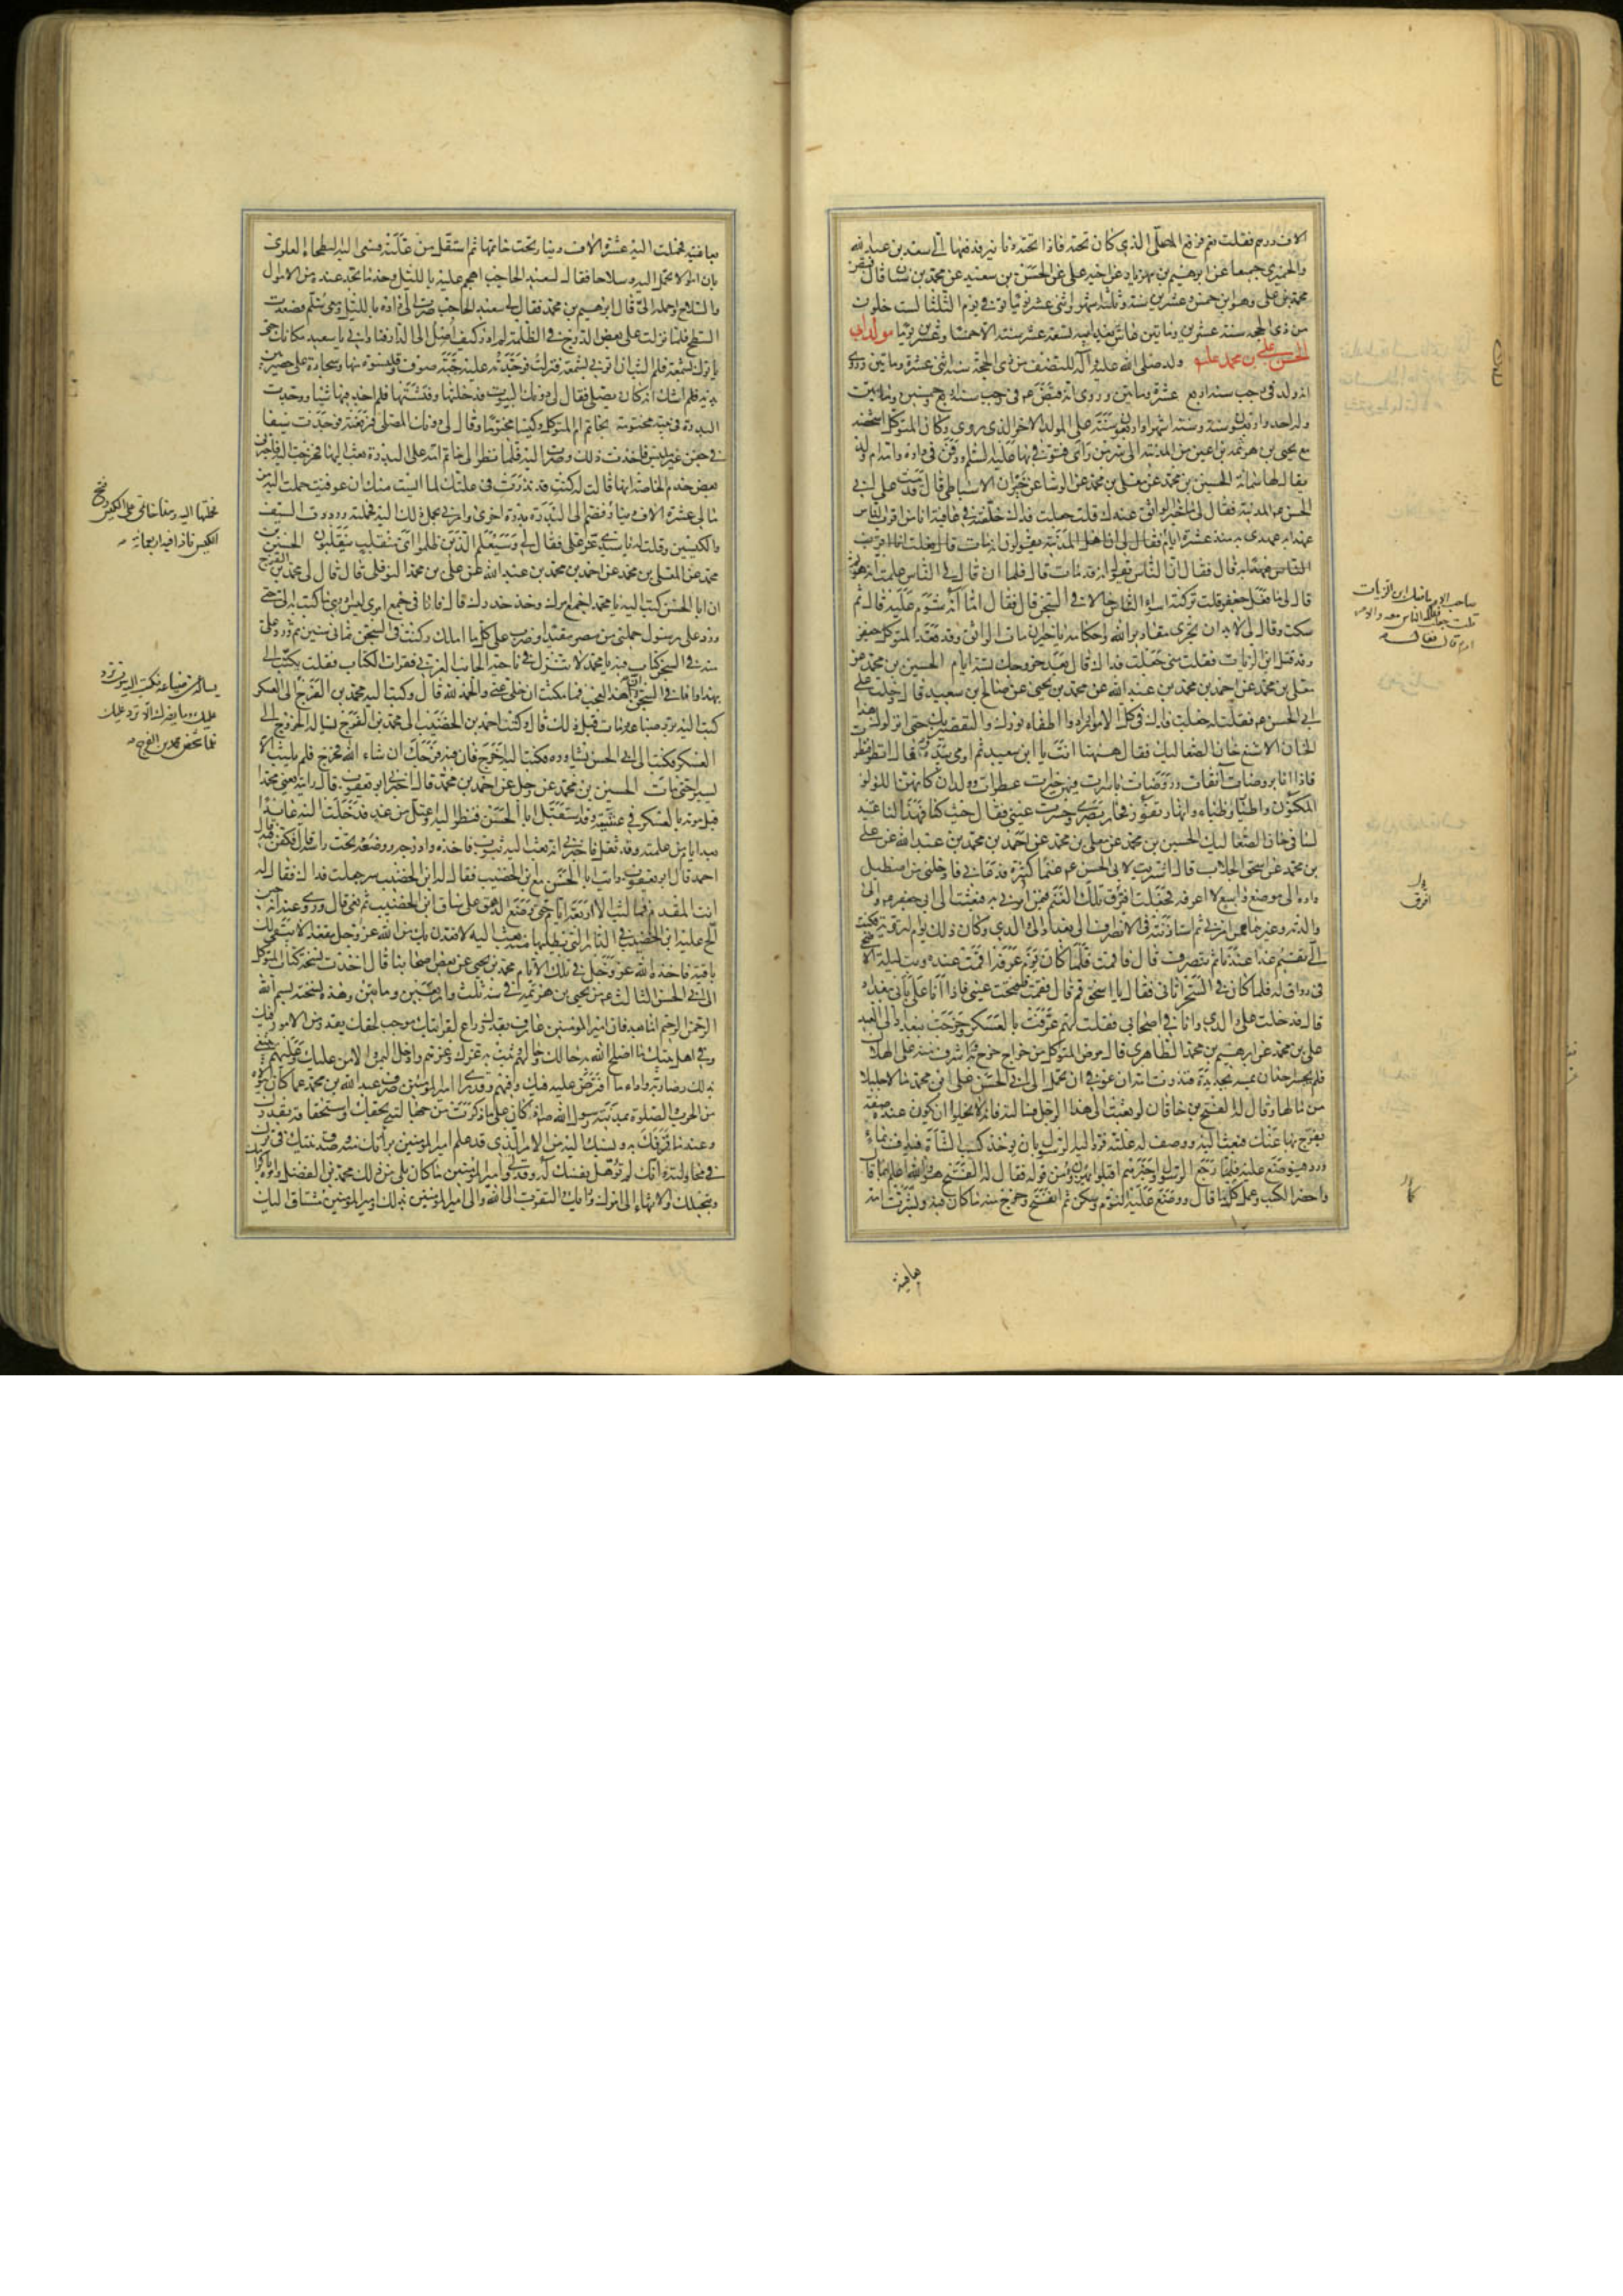 الاف درهم فقلت نعم فرفع المصلى الذي كان تحته فاذا تحته دنانير فدفعها الي سعد بن عبد الله
والحميري جميعا عن ابرهيم بن مهزيار عن اخيه علي عن الحسين بن سعيد عن محمد بن سنان قال قبض
محمد بن علي وهو ابن خمس وعشرين سنة وثلثة اشهر واثني عشر يوما توفي يوم الثلثا لست خلون
من ذي الحجه سنة عشرين ومايتين عاش بعد ابيه تسعة عشر سنة الا خمسا وعشرين يوما مولد ابي
الحسن علي بن محمد عليه ولد صلى الله عليه وآله للنصف من ذي الحجة سنة اثنى عشرة ومايتين وروي
انه ولد في رجب سنة اربع عشرة ومايتين وروى انه قبض ع في رجب سنة اربع وخمسين ومايتين
وله احد واربعون سنة وستة اشهر واربعون سنة على المولد الاخر الذي روي وكان المتوكل اشخصه
مع يحيى بن هرثمه بن اعين من المدينة الى سر من راى فتوفي بها عليه السلم ودفن في داره وامه ام ولد
يقال لها سمانه الحسين بن محمد عن معلى بن محمد عن الوشا عن خيران الاسباطي قال قدمت على ابي
الحسن ع المدينة فقال لي ما خبر الواثق عندك قلت جعلت فداك خلفته في عافية انا من اقرب الناس
عهدا به عهدي به منذ عشرة ايام فقال لي ان اهل المدينة يقولون انه مات قال فقلت انا اقرب
الناس عهدا به قال فقال ان الناس يقولوا انه قد مات قال فلما ان قال لي الناس علمت انه هو ثم
قال لي ما فعل جعفر قلت تركته اسوء الناس حالا في السجن قال فقال اما انه
سكت وقال لي لا بد ان تجري مقادير الله واحكامه يا خيران مات الواثق وقد قعد المتوكل جعفر
وقد قتل ابن الزيات فقلت متى جعلت فداك قال بعد خروجك بستة ايام الحسين بن محمد عن
معلى بن محمد عن احمد بن محمد بن عبد الله عن محمد بن يحيى عن صالح بن سعيد قال دخلت على
ابي الحسن ع فقلت له جعلت فداك في كل الامور ارادوا اطفاء نورك والتقصير بك حتى انزلوك هذا
الخان الاشنع خان الصعاليك فقال ههنا انت يا ابن سعيد ثم اومى بيده وقال انظر فنظرت
فاذا انا بروضات آنقات وروضات باسرات فيهن خيرات عطرات وولدان كانهن اللؤلؤ
المكنون واطيار وظباء وانهار تفور فحار بصري وحسرت عيني فقال حيث كنا فهذا لنا عتيد
لسنا في خان الصعاليك الحسين بن محمد عن معلى بن محمد عن احمد بن محمد بن عبد الله عن علي
بن محمد عن اسحق الجلاب قال اشتريت لابي الحسن ع غنما كثيرة فدعاني فادخلني من اصطبل
داره الى موضع واسع لا اعرفه فجعلت افرق تلك الغنم فيمن امرني به فبعثت الى ابي جعفر ع والى
والدته وغيرهما ممن امرني ثم استاذنته في الانصراف الى بغداد الى والدي وكان ذلك يوم التروية فكتب
الي تقيم غدا عندنا ثم تنصرف قال فاقمت فلما كان يوم عرفة اقمت عنده وبت ليلة الاضحى
في رواق له فلما كان في السحر اتاني فقال يا اسحق قم قال فقمت ففتحت عيني فاذا انا على بابي ببغداد
قال فدخلت على والدي وانا في اصحابي فقلت لهم عرفت بالعسكر وخرجت ببغداد الى العيد
علي بن محمد عن ابرهيم بن محمد الطاهري قال مرض المتوكل من خراج خرج به واشرف منه على الهلاك
فلم يجسر احد ان يمسه بحديدة فنذرت امه ان عوفي ان تحمل الى ابي الحسن علي ابن محمد مالا جليلا
من مالها وقال له الفتح بن خاقان لو بعثت الى هذا الرجل فسالته فانه لا يخلوا ان يكون عنده صفة
يفرج بها عنك فبعث اليه ووصف له علته فرد اليه الرسول بان يوخذ كسب الشاة فيداف بماء
ورد فيوضع عليه فلما رجع الرسول واخبرهم اقبلوا يهزؤن من قوله فقال له الفتح هو والله اعلم بما قال
واحضر الكسب وعمل كما قال ووضع عليه فغلبه النوم وسكن ثم انفتح وخرج منه ما كان فيه وبشرت امه
بعافيته
صاحب الامر ما فعل ابن الزيات
قلت جعلت فداك الناس معه والامر
امره قال فقال
افرق
بعافيته فحملت اليه عشرة الاف دينار تحت خاتمها ثم استقل من علته فسعى اليه البطحائي العلوي
بان اموالا تحمل اليه وسلاحا فقال لسعيد الحاجب اهجم عليه بالليل وخذ ما تجد عنده من الاموال
والسلاح واحمله الي قال ابرهيم بن محمد فقال لي سعيد الحاجب صرت الى داره بالليل ومعي سلم فصعدت
السطح فلما نزلت على بعض الدرج في الظلمة لم ادر كيف اصل الى الدار فناداني يا سعيد مكانك حتى
ياتوك بشمعة فلم البث ان اتوني بشمعة فنزلت فوجدته عليه جبة صوف وقلنسوة منها وسجادة على حصير بين
يديه فلم اشك انه كان يصلي فقال لي دونك البيوت فدخلتها وفتشتها فلم اجد فيها شيئا ووجدت
البدرة في بيته مختومة بخاتم ام المتوكل وكيسا مختوما وقال لي دونك المصلى فرفعته فوجدت سيفا
في جفن غير ملبس فاخذت ذلك وصرت اليه فلما نظر الى خاتم امه على البدرة بعث اليها فخرجت اليه فاخبرني
بعض خدم الخاصة انها قالت له كنت قد نذرت في علتك لما ايست منك ان عوفيت حملت اليه من
مالي عشرة الاف دينار فضم الى البدرة بدرة اخرى وامرني بحمل ذلك اليه فحملته ورددت السيف
والكيسين وقلت له يا سيدي عز علي فقال لي وسيعلم الذين ظلموا اي منقلب ينقلبون الحسين بن
محمد عن المعلى بن محمد عن احمد بن محمد بن عبد الله عن علي بن محمد النوفلي قال قال لي محمد بن الفرج
ان ابا الحسن كتب اليه يا محمد اجمع امرك وخذ حذرك قال فانا في جمع امري ليس ادري ما كتب الي حتى
ورد علي رسول حملني من مصر مقيدا وضرب على كل ما املك وكنت في السجن ثماني سنين ثم ورد علي
منه في السجن كتاب فيه يا محمد لا تنزل في ناحية الجانب الغربي فقرات الكتاب فقلت يكتب الي
بهذا وانا في السجن ان هذا لعجب فما مكثت ان خلي عني والحمد لله قال وكتب اليه محمد بن الفرج
العسكر فكتب الى ابي الحسن يشاوره فكتب اليه اخرج فان فيه فرجك ان شاء الله فخرج فلم يلبث الا
يسيرا حتى مات الحسين بن محمد عن رجل عن احمد بن محمد قال اخبرني ابو يعقوب قال رايته يعني محمدا
قبل موته بالعسكر في عشية وقد استقبل ابا الحسن فنظر اليه واعتل من غد فدخلت اليه عايدا
بعد ايام من علته وقد ثقل فاخبرني انه بعث اليه بثوب فاخذه وادرجه ووضعه تحت راسه قال فكفن فيه قال
احمد قال ابو يعقوب رايت ابا الحسن مع ابن الخضيب فقال له ابن الخضيب سر جعلت فداك فقال له
انت المقدم فما لبث الا اربعة ايام حتى وضع الدهق على ساق ابن الخضيب ثم نعي قال وروي عنه انه حين
الح عليه ابن الخضيب في الدار التي يطلبها منه بعث اليه لاقعدن بك من الله عز وجل مقعدا لا يبقى لك
باقية فاخذه الله عز وجل في تلك الايام محمد بن يحيى عن بعض اصحابنا قال اخذت نسخة كتاب المتوكل
الى ابي الحسن الثالث ع من يحيى بن هرثمة في سنة ثلث واربعين ومايتين وهذه نسخته بسم الله
الرحمن الرحيم اما بعد فان امير المومنين عارف بقدرك راع لقرابتك موجب لحقك يقدر من الامور فيك
وفي اهل بيتك ما اصلح الله به حالك وحالهم
من الحرب والصلوة بمدينة رسول الله ص
وعندما قرفك به ونسبك اليه من الامر الذي قد علم امير المومنين براءتك منه وصدق نيتك في ترك
بتبجيلك والانتهاء الى امرك ورايك والتقرب الى الله والى امير المومنين بذلك وامير المومنين مشتاق اليك
فحملتها اليه وهذا خاتمي على الكيس وفتح
الكيس فاذا فيه اربعمائة